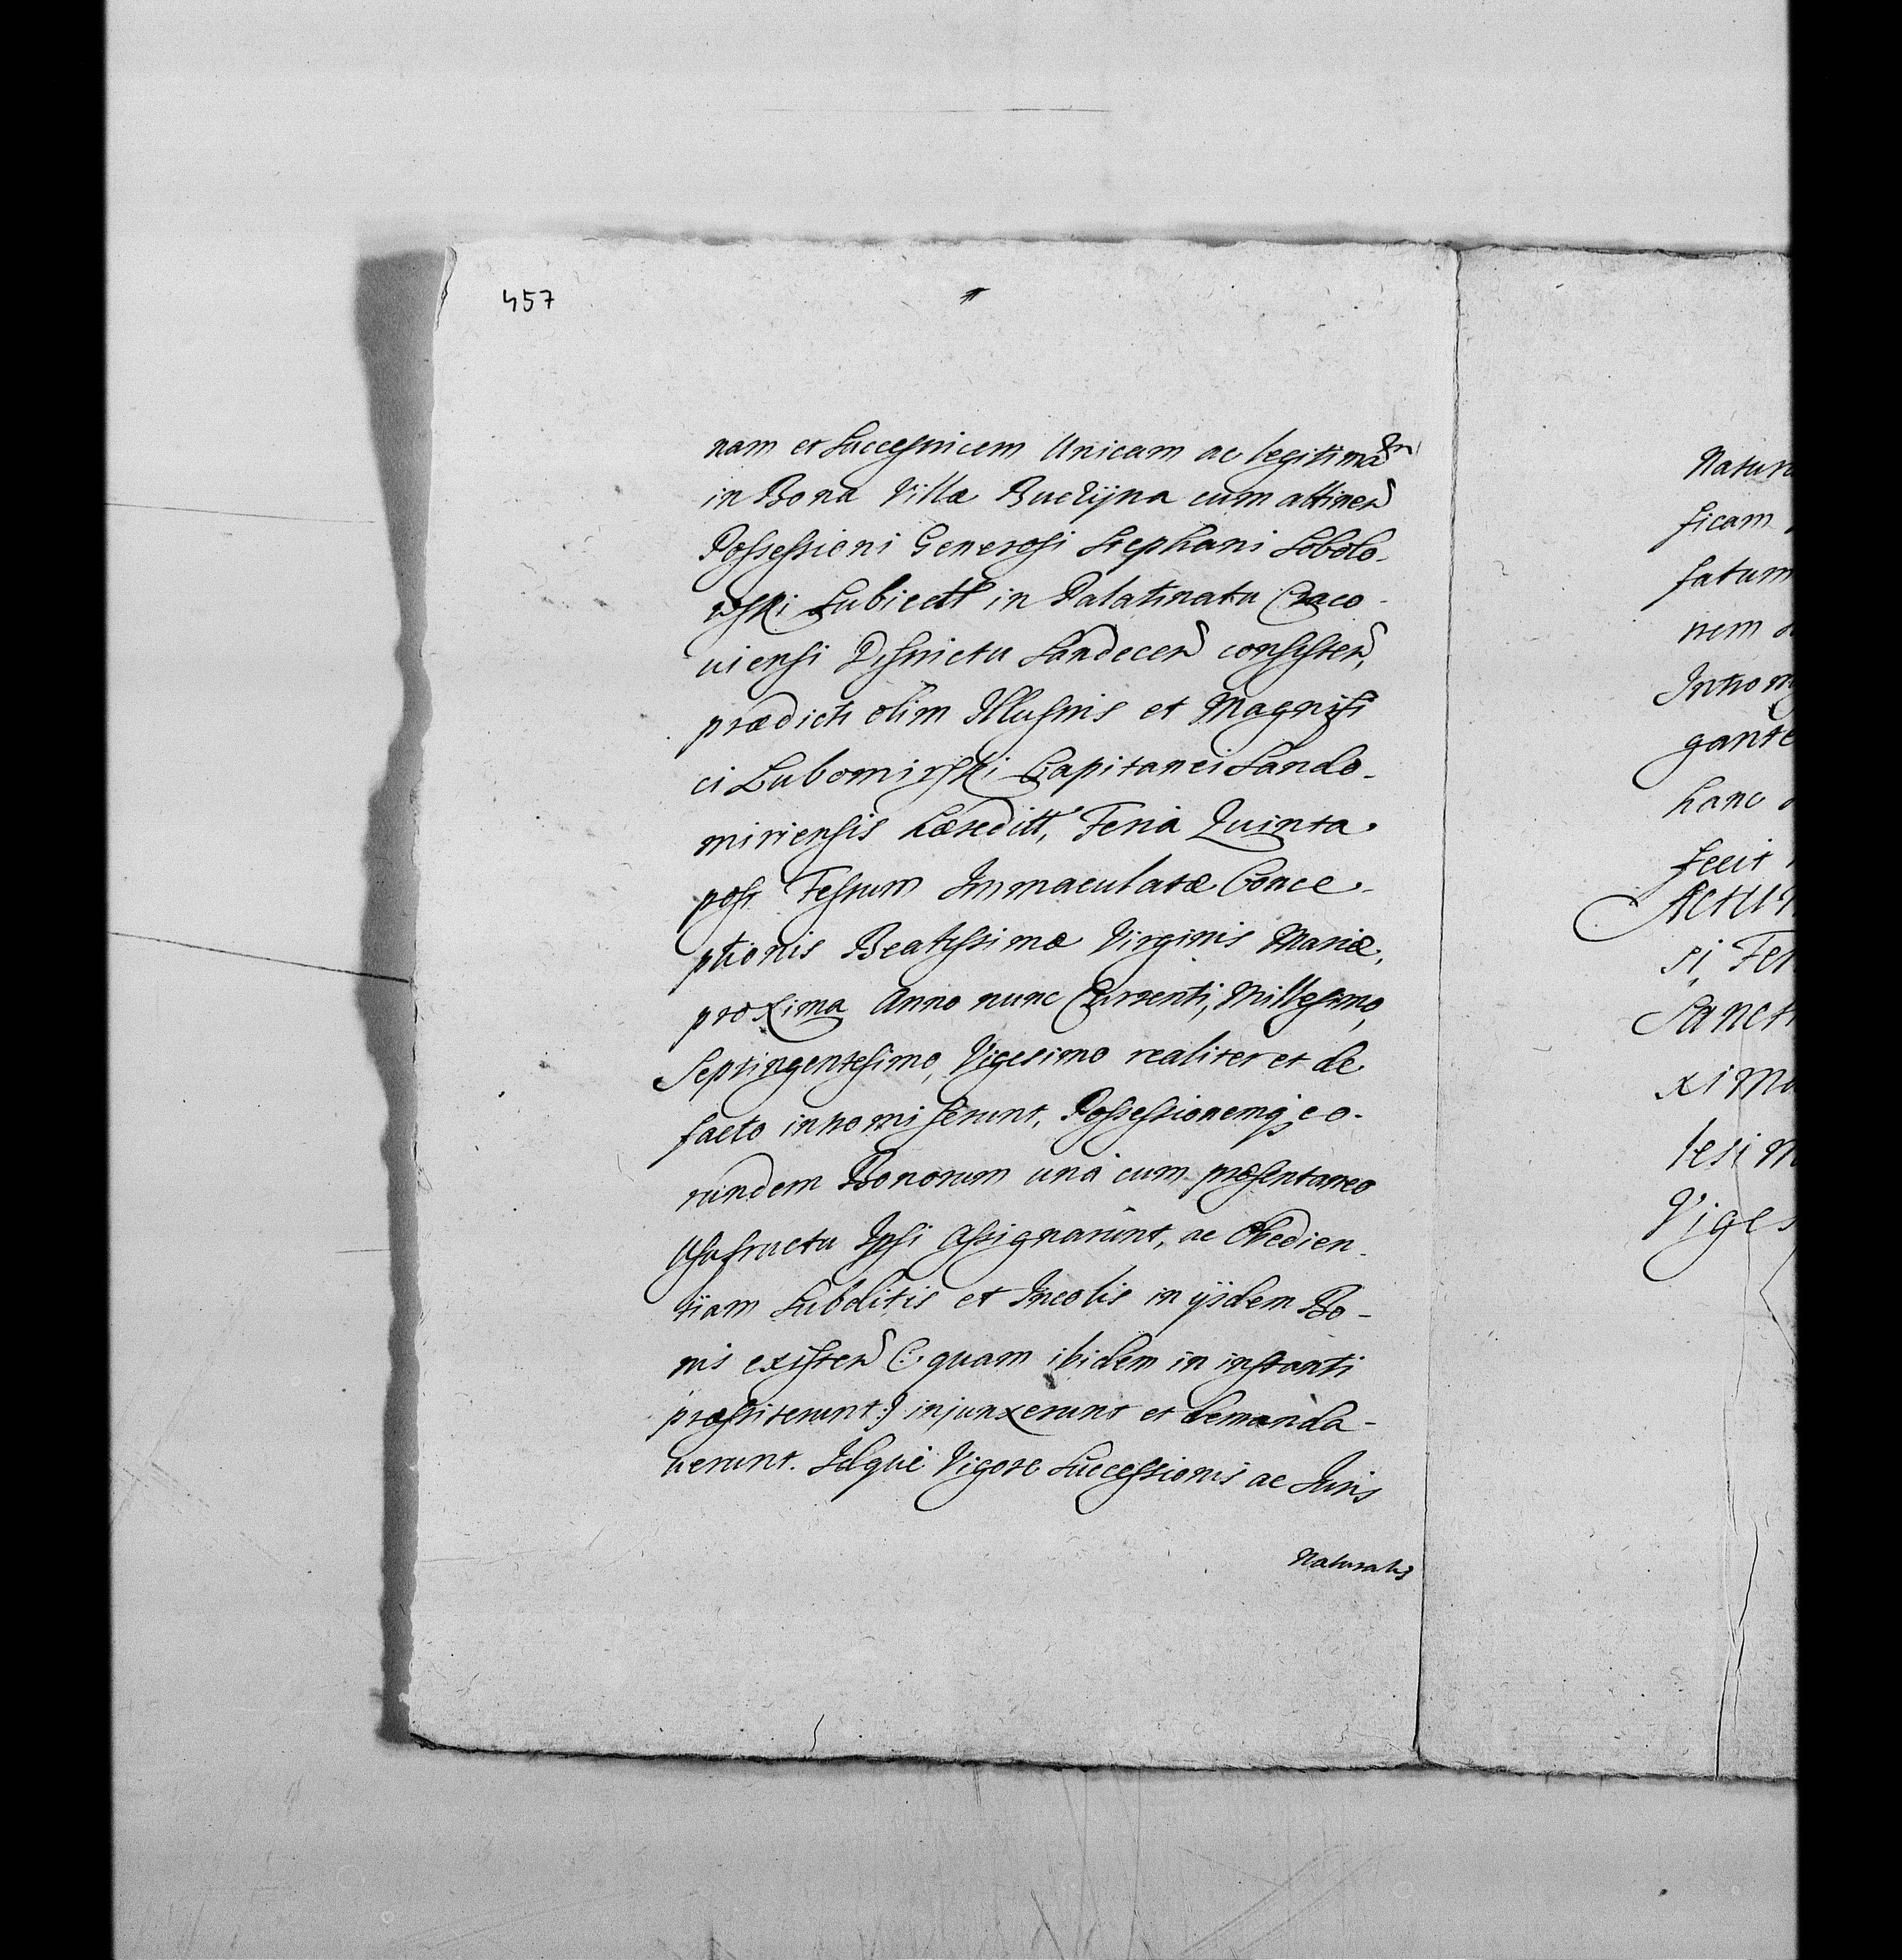 457
nam et Successricem Unicam ac legitimam
in Bona Villæ Buczyna cum attinen
Possessioni Generosi Stephani Sobolo-
wski Subiectt in Palatinatu Craco-
uiensi Districtu Sandecen consisten,
prædicti olim Illustris et Magnifi
ci Lubomirski Capitanei Sando-
miriensis hæreditt, Feria Quinta
post Festum Immaculatæ Conce-
ptionis Beatissimæ Virginis Mariæ,
proxima Anno nunc Currenti, Millesimo,
Septingentesimo, Vigesimo realiter et de
facto intromiserunt, Possessionemq eo-
rundem Bonorum unà cum præsentaneo
Usufructu Ipsi assignarunt, ac Obedien-
tiam Subditis et Incolis in ijsdem Bo-
nis existen (: quam ibidem in instanti
præstiterunt :) injunxerunt et demanda-
uerunt. Idque Vigore Successionis ac Juris
Naturalis
Natur
ficam
fatum
nem
Introm
gante
hanc
fecit
Actum
si, Fer
Sancti
xima
lesim
Viges